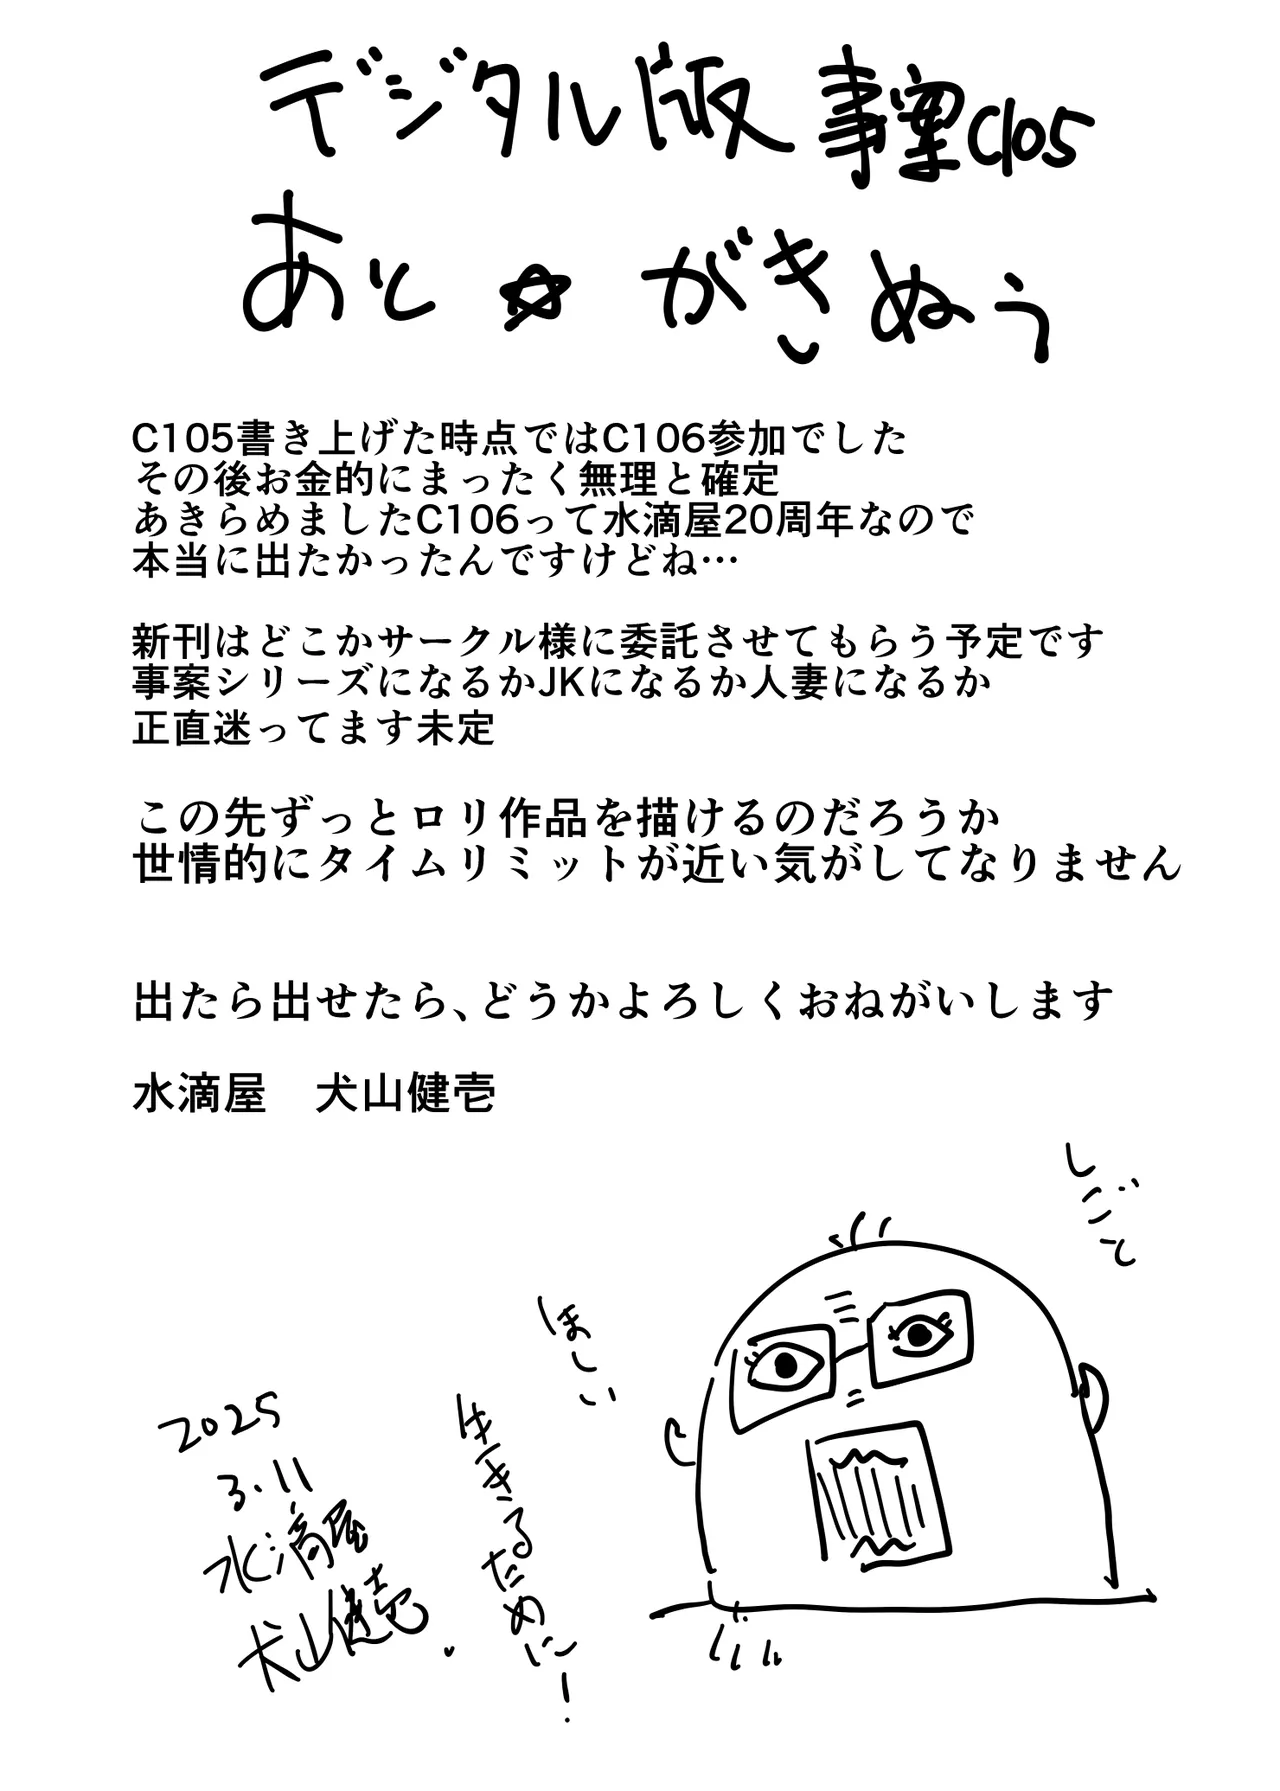 デジタル版 事案C105
あと☆がきぬぅ
C105書き上げた時点ではC106参加でした
その後お金的にまったく無理と確定
あきらめましたC106って水滴屋20周年なので
本当に出たかったんですけどね…
新刊はどこかサークル様に委託させてもらう予定です
事案シリーズになるかJKになるか人妻になるか
正直迷ってます未定
この先ずっとロリ作品を描けるのだろうか
世情的にタイムリミットが近い気がしてなりません
出たら出せたら、どうかよろしくおねがいします
水滴屋　犬山健壱
しごと
ほしい
生きるために!
2025
3.11
水滴屋
犬山健壱